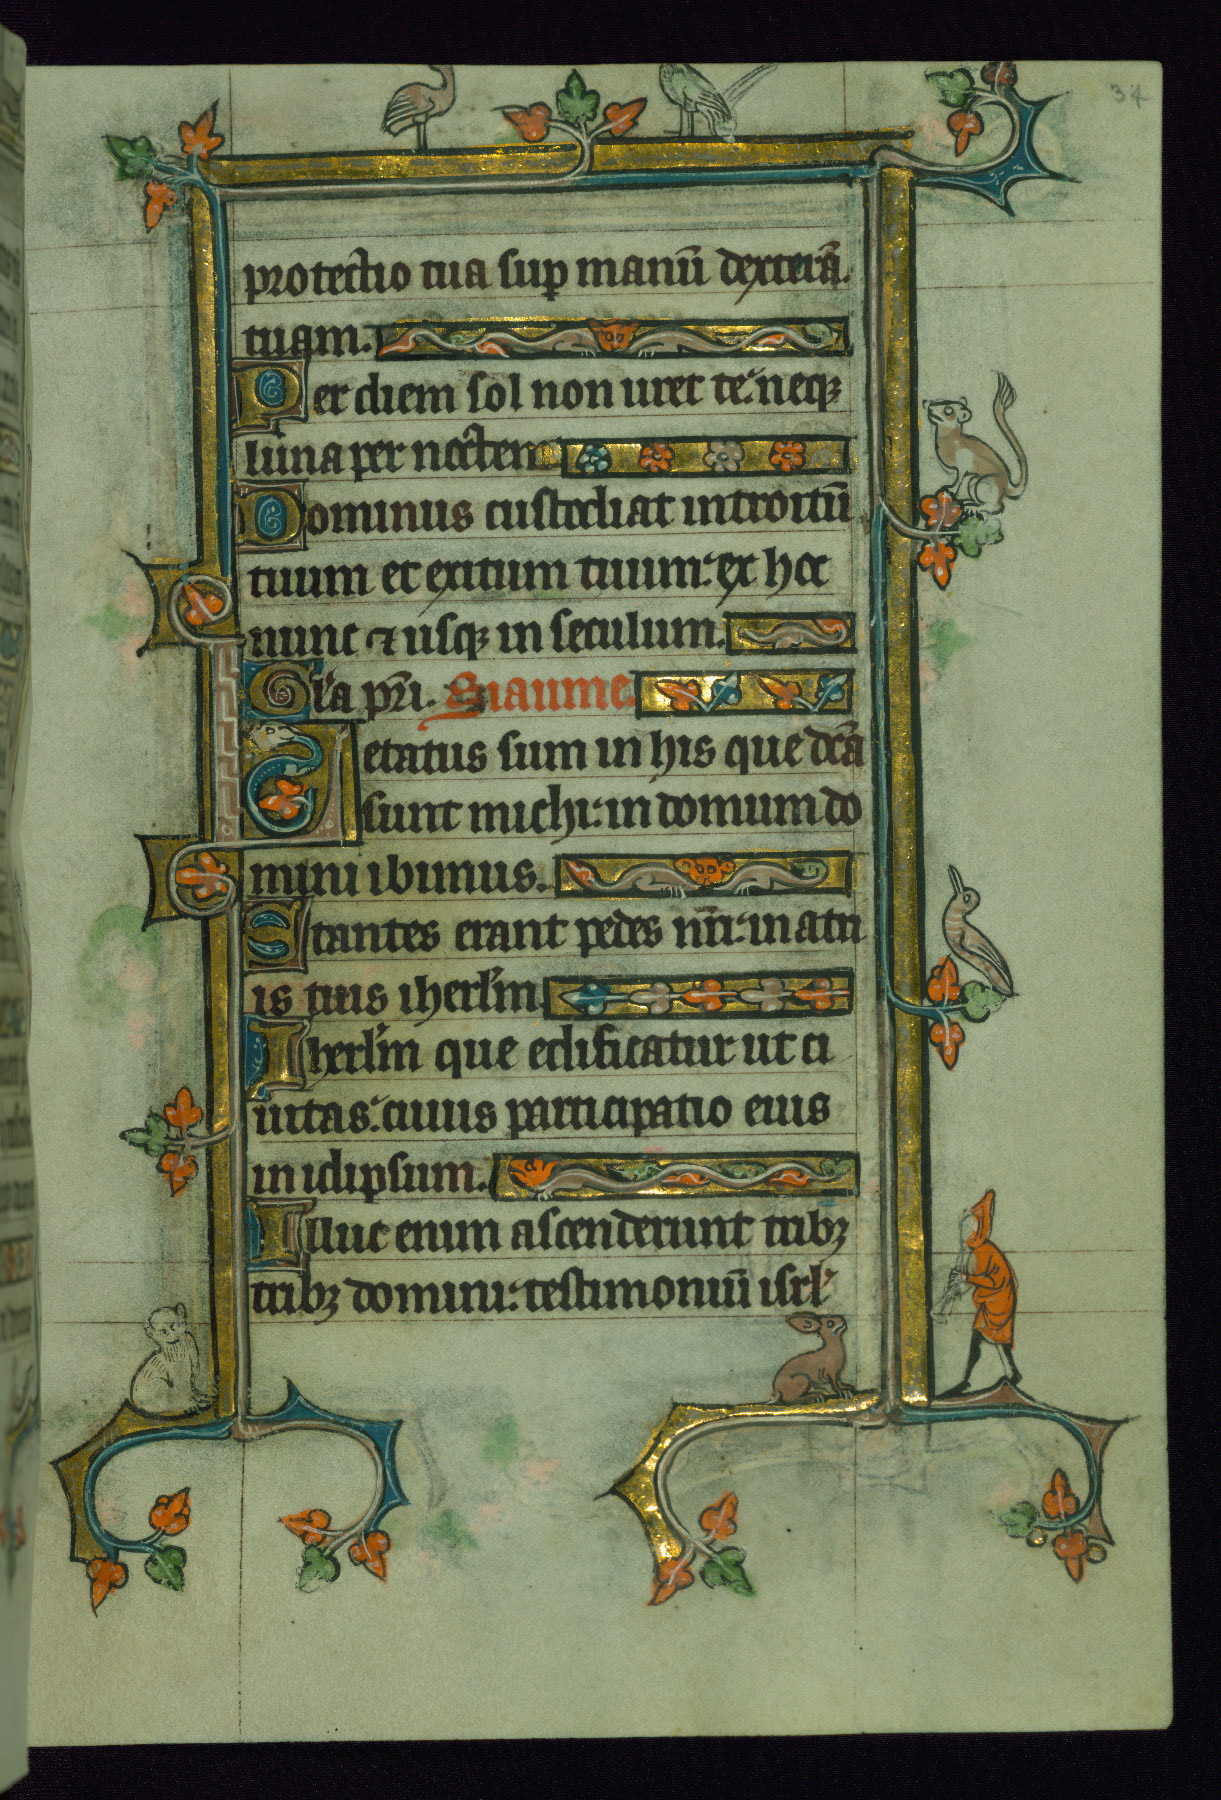 34
protectio tua sup manū dexterā
tuam.
Per diem sol non uret te: neqꝫ
luna per noctem
Dominus custodiat introitū
tuum et exitum tuum: ex hoc
nunc ⁊ usqꝫ in seculum.
Gl'a pr̄i. Siaume.
Letatus sum in his que dc̄a
sunt michi: in domum do
mini ibimus.
Stantes erant pedes nr̄i: in atri
is tuis iherl'm.
Iherl'm que edificatur ut ci
uitas: cuius participatio eius
in idipsum.
Illuc enim ascenderunt tribꝫ
tribꝫ domini: testimoniū isrl'